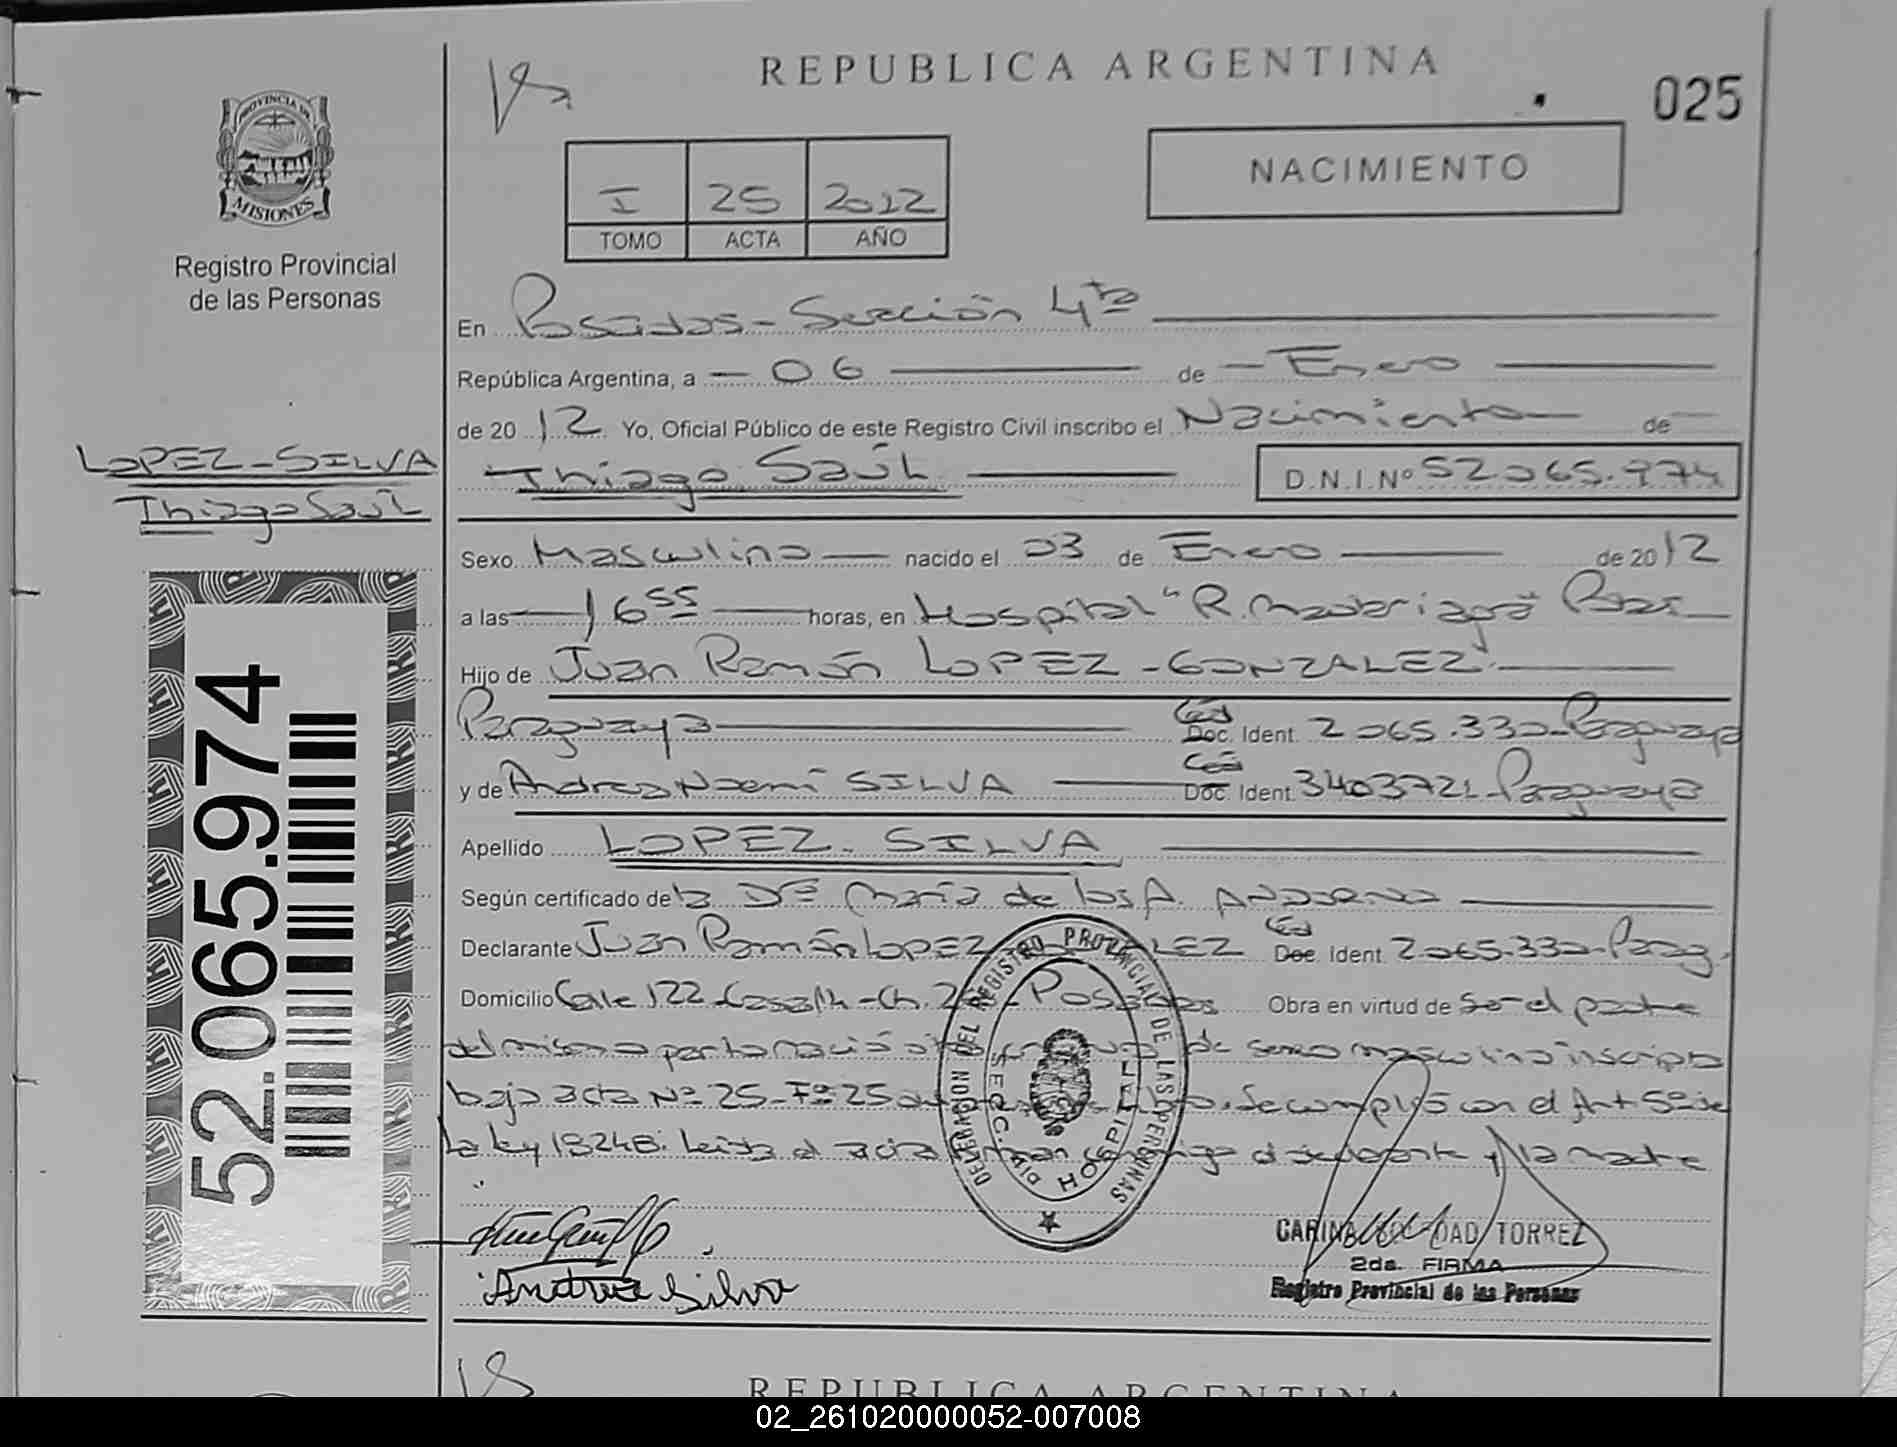 REPUBLICA ARGENTINA
025
PROVINCIA DE
MISIONES
Registro Provincial
de las Personas
I 25 2012
TOMO ACTA AÑO
NACIMIENTO
En Posadas - Sección 4ta
República Argentina, a - 06 de - Enero
de 2012 Yo, Oficial Público de este Registro Civil inscribo el Nacimiento de
Thiago Saúl D.N.I.Nº 52.065.974
LOPEZ-SILVA
Thiago Saúl
Sexo Masculino nacido el 03 de Enero de 2012
a las 16 55 horas, en Hospital "R. Madariaga" Pdas
Hijo de Juan Ramón LOPEZ - GONZALEZ
Paraguaya Ced Doc. Ident. 2065.330 - Paraguaya
y de Andrea Noemí SILVA Ced Doc. Ident. 3403721 - Paraguaya
Apellido LOPEZ - SILVA
Según certificado de la Dra María de los A.
Declarante Juan Ramón LOPEZ Ced Doc. Ident. 2065.330 - Parag.
Domicilio Calle 122 - Casa - Ch. - Posadas Obra en virtud de Ser el padre
del mismo parto nació de sexo masculino inscripto
bajo acta Nº 25 - Fº 25 Se cumplió con el Art 5º de
La ley 18248. Leída el acta firman conmigo el declarante y la madre
52.065.974
DELEGACION DEL REGISTRO PROVINCIAL DE LAS PERSONAS
SECC. DIV. HOSPITAL
Andrea Silva
CARINA SOLEDAD TORREZ
2da. FIRMA
Registro Provincial de las Personas
REPUBLICA ARGENTINA
02_261020000052-007008